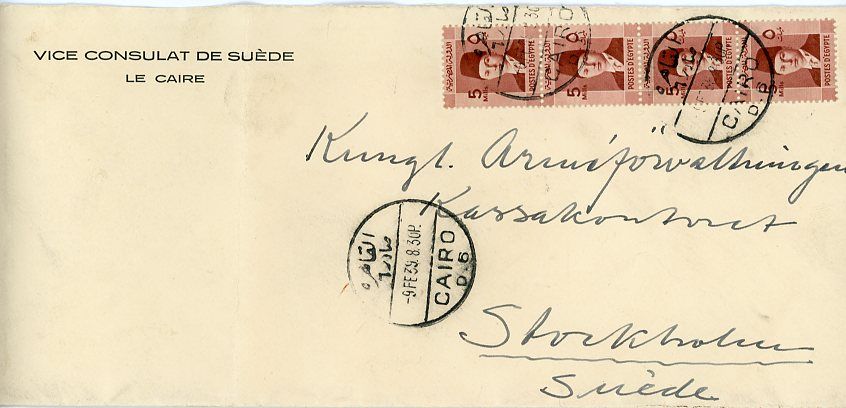 VICE CONSULAT DE SUÈDE
LE CAIRE
5 Mills POSTES D'EGYPTE
5 Mills POSTES D'EGYPTE
5 Mills POSTES D'EGYPTE
5 Mills POSTES D'EGYPTE
CAIRO
القاهرة
CAIRO D.6
Kungl. Arméförvaltningen
Kassakontoret
القاهرة
صادر
-9FE39.8.30P.
CAIRO
D.6
Stockholm
Suède